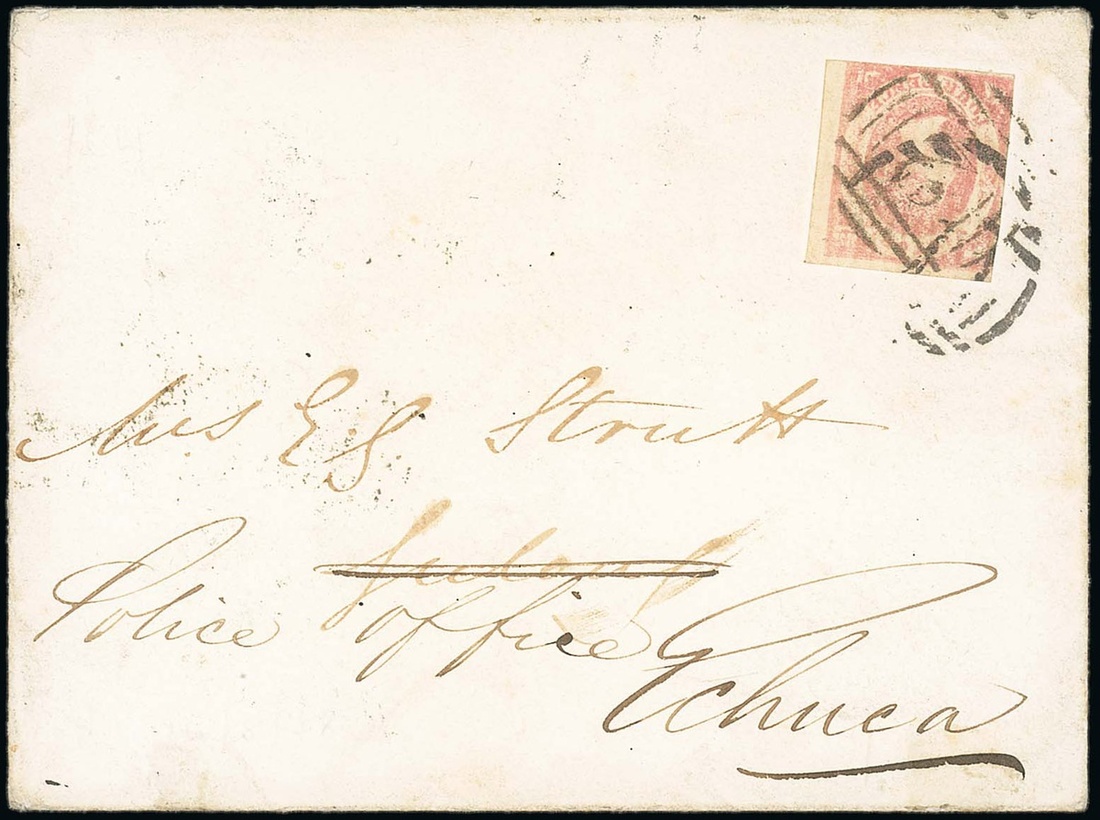 Mrs E. S. Strutt
Geelong
Police Office
Echuca